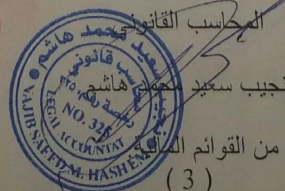 المحاسب القانوني
نجيب سعيد محمد هاشم
من القوائم المالية
( 3 )
نجيب سعيد محمد هاشم
محاسب قانوني
LEGAL ACCOUNTANT
NO. 325
NAJIB SAEED M. HASHEM